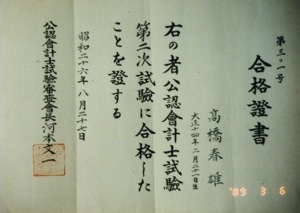 第三〇一号
合格證書
高橋春雄
大正十四年二月二十一日生
右の者公認會計士試驗
第二次試驗に合格した
ことを證する
昭和二十六年八月二十七日
公認會計士試驗審査會長河本文一
'89 3 6